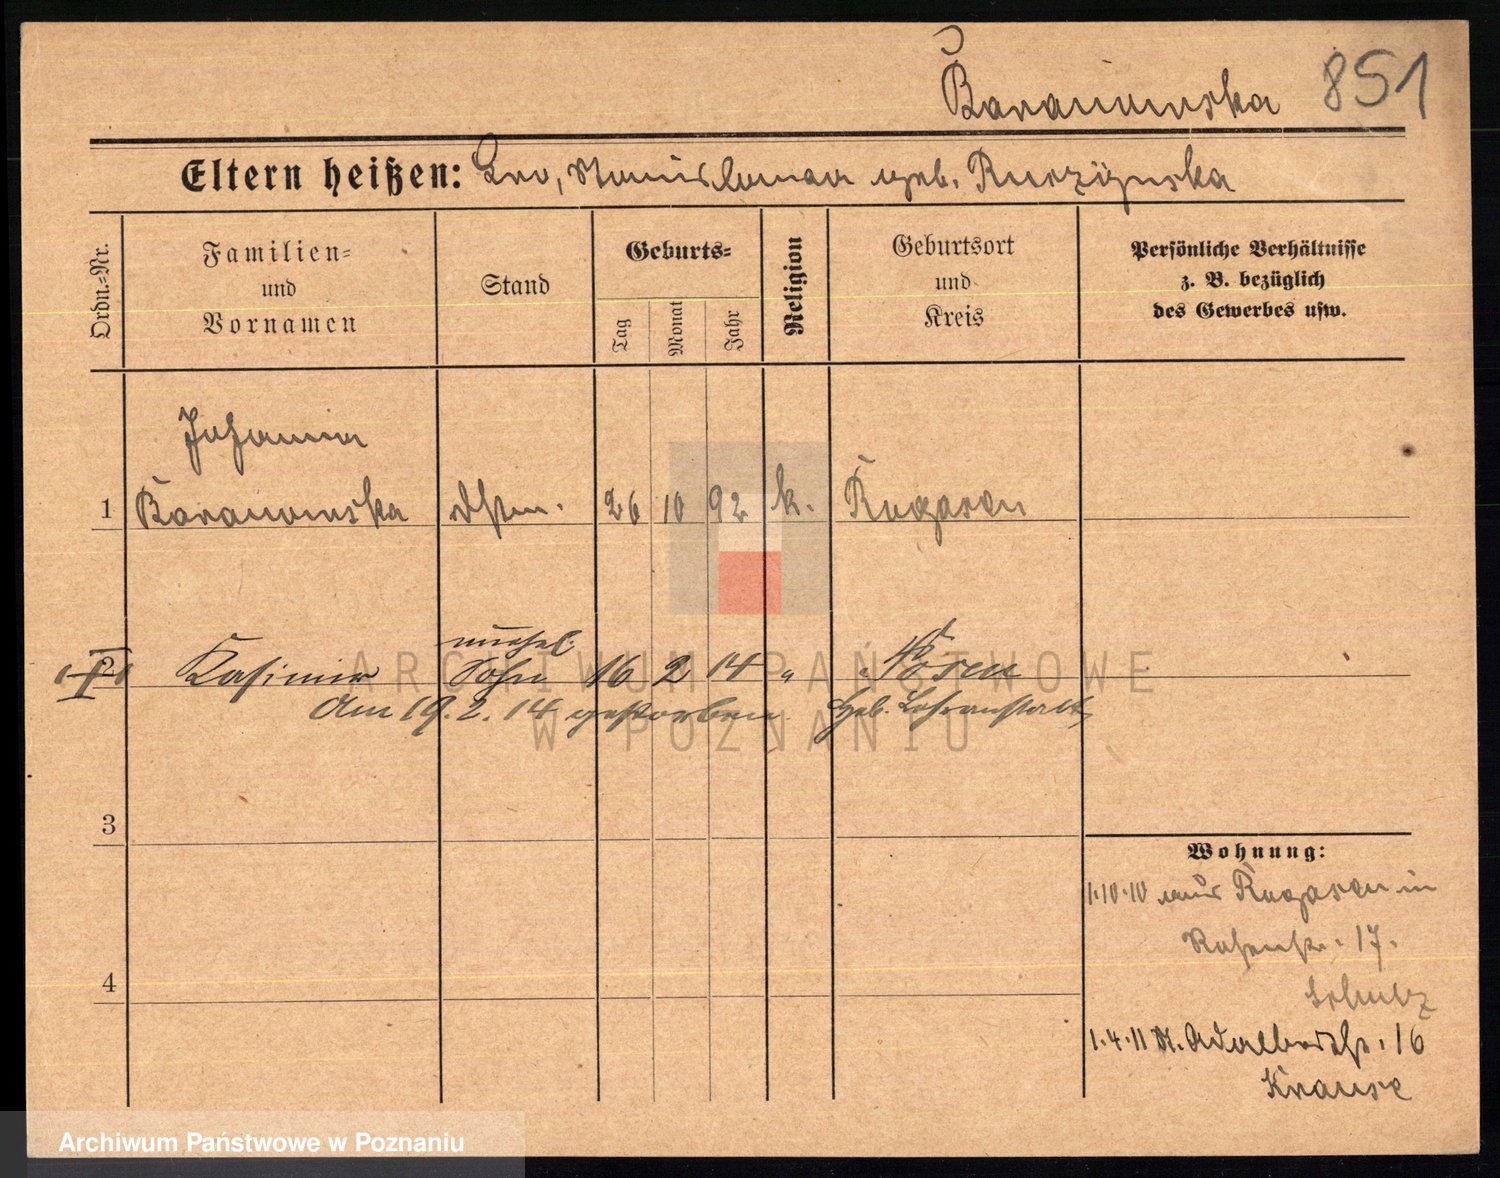 Baranowska 851
Eltern heißen: Leo, Stanislawa geb. Ruszÿnska
Ordn.-Nr.
Familien-
und
Vornamen
Stand
Geburts-
Tag
Monat
Jahr
Religion
Geburtsort
und
Kreis
Persönliche Verhältnisse
z. B. bezüglich
des Gewerbes usw.
Johanna
1 Baranowska 26 10 92 k. Rogasen
unehel.
2 Kasimir Sohn 16 2 14 " Posen
Am 19.2.14 gestorben. Heb. Lehranstalt
3
4
Wohnung:
1.10.10 aus Rogasen in
17.
Schulz
1.4.11 St. Adalbertstr. 16
Krause
ARCHIWUM PAŃSTWOWE
W POZNANIU
Archiwum Państwowe w Poznaniu